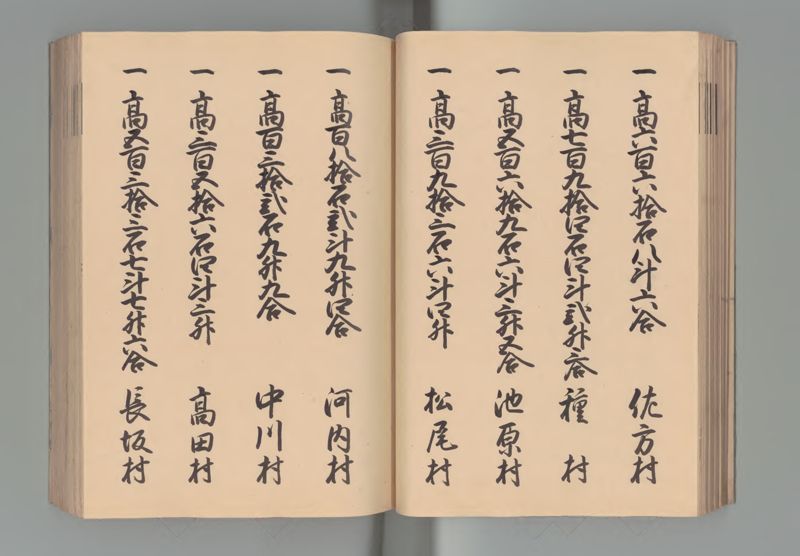 一 高六百六拾石八斗六合 佐方村
一 高七百九拾四石四斗弐升三合 種村
一 高五百六拾九石六斗三升五合 池原村
一 高三百九拾三石六斗四升 松尾村
一 高百八拾石弐斗九升四合 河内村
一 高百三拾弐石九升九合 中川村
一 高三百五拾六石四斗三升 高田村
一 高五百三拾三石七斗七升六合 長坂村